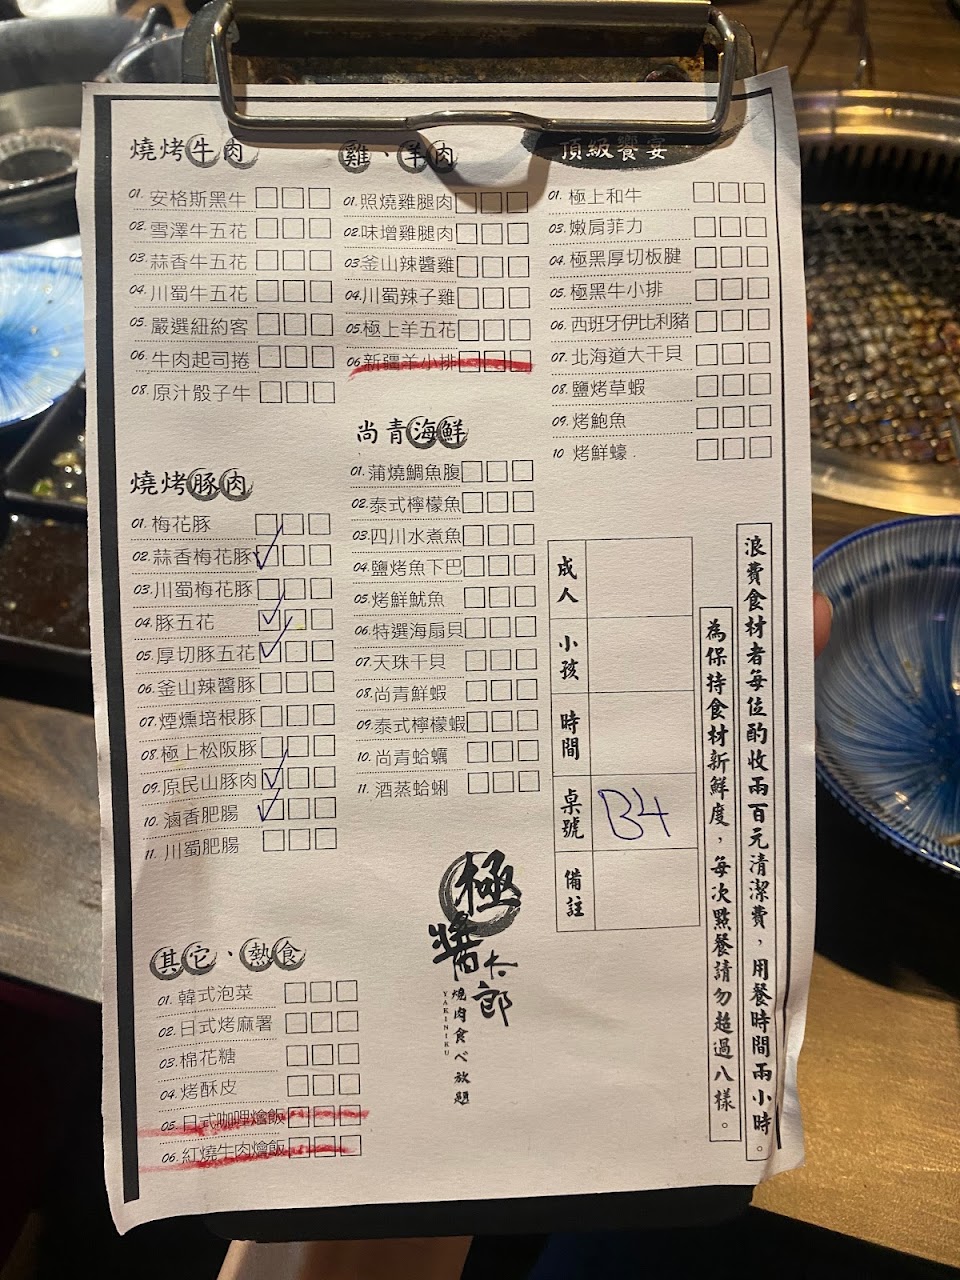 燒烤牛肉
01. 安格斯黑牛
02. 雪澤牛五花
03. 蒜香牛五花
04. 川蜀牛五花
05. 嚴選紐約客
06. 牛肉起司捲
08. 原汁骰子牛
燒烤豚肉
01. 梅花豚
02. 蒜香梅花豚
03. 川蜀梅花豚
04. 豚五花
05. 厚切豚五花
06. 釜山辣醬豚
07. 煙燻培根豚
08. 極上松阪豚
09. 原民山豚肉
10. 滷香肥腸
11. 川蜀肥腸
其它、熱食
01. 韓式泡菜
02. 日式烤麻署
03. 棉花糖
04. 烤酥皮
05. 日式咖哩燴飯
06. 紅燒牛肉燴飯
雞、羊肉
01. 照燒雞腿肉
02. 味增雞腿肉
03. 釜山辣醬雞
04. 川蜀辣子雞
05. 極上羊五花
06. 新疆羊小排
尚青海鮮
01. 蒲燒鯛魚腹
02. 泰式檸檬魚
03. 四川水煮魚
04. 鹽烤魚下巴
05. 烤鮮魷魚
06. 特選海扇貝
07. 天珠干貝
08. 尚青鮮蝦
09. 泰式檸檬蝦
10. 尚青蛤蠣
11. 酒蒸蛤蜊
極醬太郎
燒肉食べ放題
YAKINIKU
頂級饗宴
01. 極上和牛
03. 嫩肩菲力
04. 極黑厚切板腱
05. 極黑牛小排
06. 西班牙伊比利豬
07. 北海道大干貝
08. 鹽烤草蝦
09. 烤鮑魚
10 烤鮮蠔.
成人
小孩
時間
桌號 B4
備註
浪費食材者每位酌收兩百元清潔費，用餐時間兩小時。
為保持食材新鮮度，每次點餐請勿超過八樣。